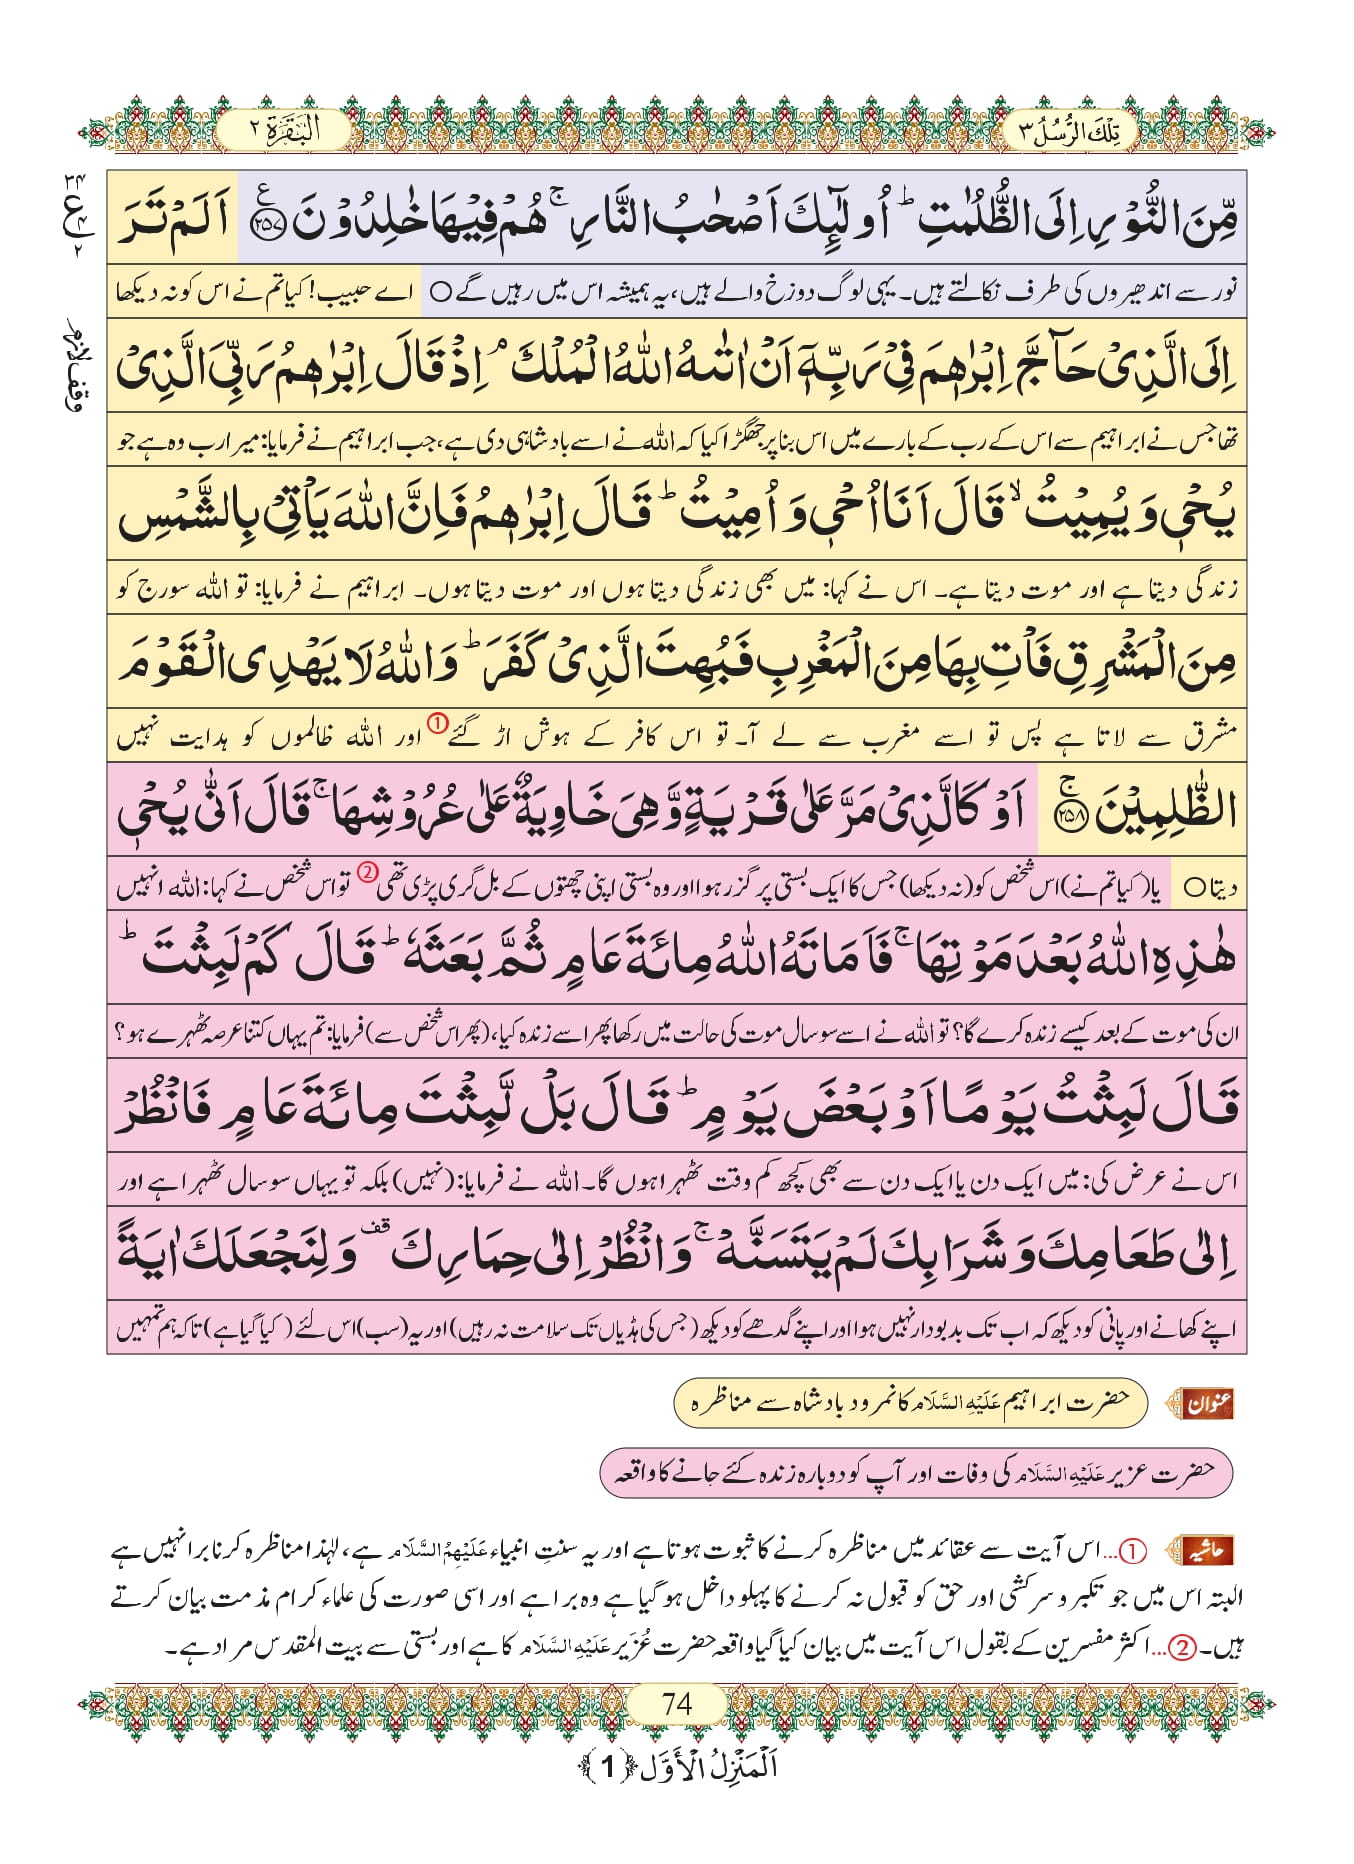 تِلْكَ الرُّسُلُ ٣
اَلْبَقَرَة ٢
مِّنَ النُّوْرِ اِلَى الظُّلُمٰتِ ؕ اُولٰٓئِكَ اَصْحٰبُ النَّارِ ۚ هُمْ فِیْهَا خٰلِدُوْنَ ﴿۲۵۷﴾ اَلَمْ تَرَ
نور سے اندھیروں کی طرف نکالتے ہیں۔ یہی لوگ دوزخ والے ہیں، یہ ہمیشہ اس میں رہیں گے ○ اے حبیب! کیا تم نے اس کو نہ دیکھا
اِلَى الَّذِیْ حَآجَّ اِبْرٰهٖمَ فِیْ رَبِّهٖۤ اَنْ اٰتٰىهُ اللّٰهُ الْمُلْكَ ۘ اِذْ قَالَ اِبْرٰهٖمُ رَبِّیَ الَّذِیْ
وقف لازم
تھا جس نے ابراہیم سے اس کے رب کے بارے میں اس بنا پر جھگڑا کیا کہ اللہ نے اسے بادشاہی دی ہے، جب ابراہیم نے فرمایا: میرا رب وہ ہے جو
یُحْیٖ وَ یُمِیْتُ ۙ قَالَ اَنَا اُحْیٖ وَ اُمِیْتُ ؕ قَالَ اِبْرٰهٖمُ فَاِنَّ اللّٰهَ یَاْتِیْ بِالشَّمْسِ
زندگی دیتا ہے اور موت دیتا ہے۔ اس نے کہا: میں بھی زندگی دیتا ہوں اور موت دیتا ہوں۔ ابراہیم نے فرمایا: تو اللہ سورج کو
مِنَ الْمَشْرِقِ فَاْتِ بِهَا مِنَ الْمَغْرِبِ فَبُهِتَ الَّذِیْ كَفَرَ ؕ وَ اللّٰهُ لَا یَهْدِی الْقَوْمَ
مشرق سے لاتا ہے پس تو اسے مغرب سے لے آ۔ تو اس کافر کے ہوش اڑ گئے ① اور اللہ ظالموں کو ہدایت نہیں
الظّٰلِمِیْنَ ﴿۲۵۸﴾ۚ اَوْ كَالَّذِیْ مَرَّ عَلٰى قَرْیَةٍ وَّ هِیَ خَاوِیَةٌ عَلٰى عُرُوْشِهَا ۚ قَالَ اَنّٰى یُحْیٖ
دیتا ○ یا (کیا تم نے) اس شخص کو (نہ دیکھا) جس کا ایک بستی پر گزر ہوا اور وہ بستی اپنی چھتوں کے بل گری پڑی تھی ② تو اس شخص نے کہا: اللہ انہیں
هٰذِهِ اللّٰهُ بَعْدَ مَوْتِهَا ۚ فَاَمَاتَهُ اللّٰهُ مِائَةَ عَامٍ ثُمَّ بَعَثَهٗ ؕ قَالَ كَمْ لَبِثْتَ ؕ
ان کی موت کے بعد کیسے زندہ کرے گا؟ تو اللہ نے اسے سو سال موت کی حالت میں رکھا پھر اسے زندہ کیا، (پھر اس شخص سے) فرمایا: تم یہاں کتنا عرصہ ٹھہرے ہو؟
قَالَ لَبِثْتُ یَوْمًا اَوْ بَعْضَ یَوْمٍ ؕ قَالَ بَلْ لَّبِثْتَ مِائَةَ عَامٍ فَانْظُرْ
اس نے عرض کی: میں ایک دن یا ایک دن سے بھی کچھ کم وقت ٹھہرا ہوں گا۔ اللہ نے فرمایا: (نہیں) بلکہ تو یہاں سو سال ٹھہرا ہے اور
اِلٰى طَعَامِكَ وَ شَرَابِكَ لَمْ یَتَسَنَّهْ ۚ وَ انْظُرْ اِلٰى حِمَارِكَ قف وَ لِنَجْعَلَكَ اٰیَةً
اپنے کھانے اور پانی کو دیکھ کہ اب تک بدبودار نہیں ہوا اور اپنے گدھے کو دیکھ (جس کی ہڈیاں تک سلامت نہ رہیں) اور یہ (سب) اس لئے (کیا گیا ہے) تاکہ ہم تمہیں
عنوان حضرت ابراہیم عَلَیْهِ السَّلَام کا نمرود بادشاہ سے مناظرہ
حضرت عزیر عَلَیْهِ السَّلَام کی وفات اور آپ کو دوبارہ زندہ کئے جانے کا واقعہ
حاشیہ ①... اس آیت سے عقائد میں مناظرہ کرنے کا ثبوت ہوتا ہے اور یہ سنتِ انبیاء عَلَیْهِمُ السَّلَام ہے، لہٰذا مناظرہ کرنا برا نہیں ہے
البتہ اس میں جو تکبر و سرکشی اور حق کو قبول نہ کرنے کا پہلو داخل ہو گیا ہے وہ برا ہے اور اسی صورت کی علماء کرام مذمت بیان کرتے
ہیں۔ ②... اکثر مفسرین کے بقول اس آیت میں بیان کیا گیا واقعہ حضرت عُزَیر عَلَیْهِ السَّلَام کا ہے اور بستی سے بیت المقدس مراد ہے۔
74
اَلْمَنْزِلُ الْاَوَّل ﴿1﴾